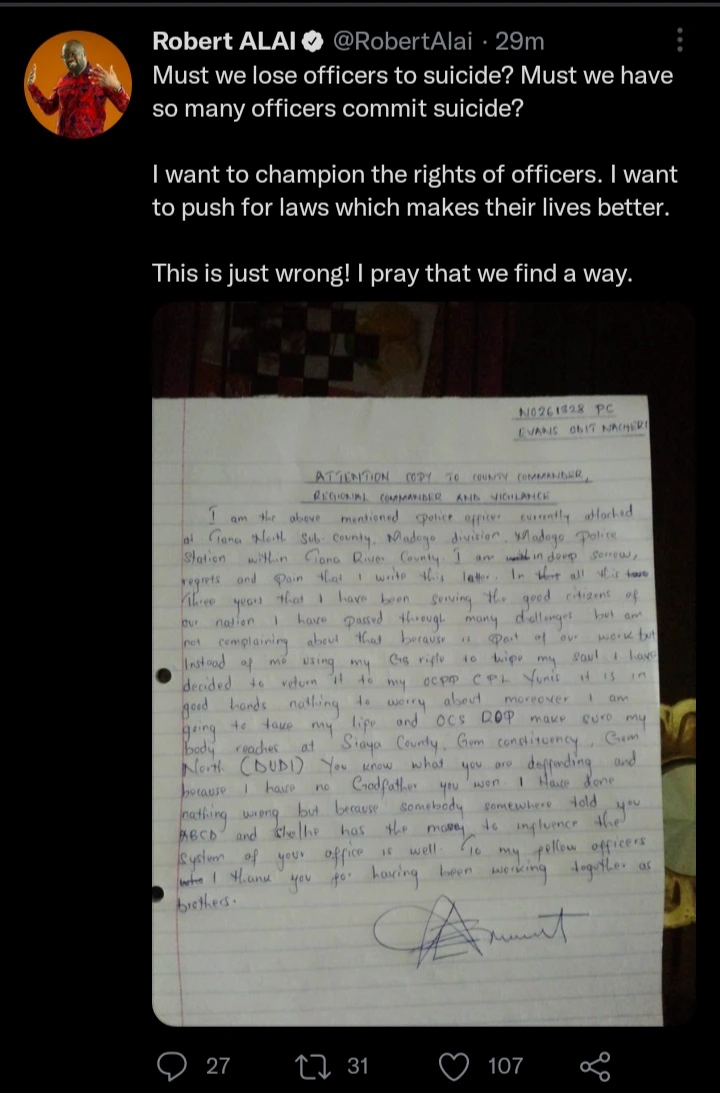 Robert ALAI @RobertAlai · 29m
Must we lose officers to suicide? Must we have
so many officers commit suicide?
I want to champion the rights of officers. I want
to push for laws which makes their lives better.
This is just wrong! I pray that we find a way.
NO261328 PC
EVANS OBIT NACHERI
ATTENTION COPY TO COUNTY COMMANDER,
REGIONAL COMMANDER AND VIGILANCE
I am the above mentioned police officer currently attached
at Tana North Sub-County, Madogo division, Madogo Police
Station within Tana River County. I am in deep sorrow,
regrets and pain that I write this letter. In all this
three years that I have been serving the good citizens of
our nation I have passed through many challenges but am
not complaining about that because is part of our work but
Instead of me using my G3 rifle to wipe my soul I have
decided to return it to my CPL Yunis it is in
good hands nothing to worry about moreover I am
going to take my life and OCS make sure my
body reaches at Siaya County, Gem constituency, Gem
North (DUDI) You know what you are deffending and
because I have no Godfather you won. I Have done
nothing wrong but because somebody somewhere told you
ABCD and She/he has the money to influence the
system of your office is well. To my fellow officers
I thank you for having been working together as
brothers.
27 31 107